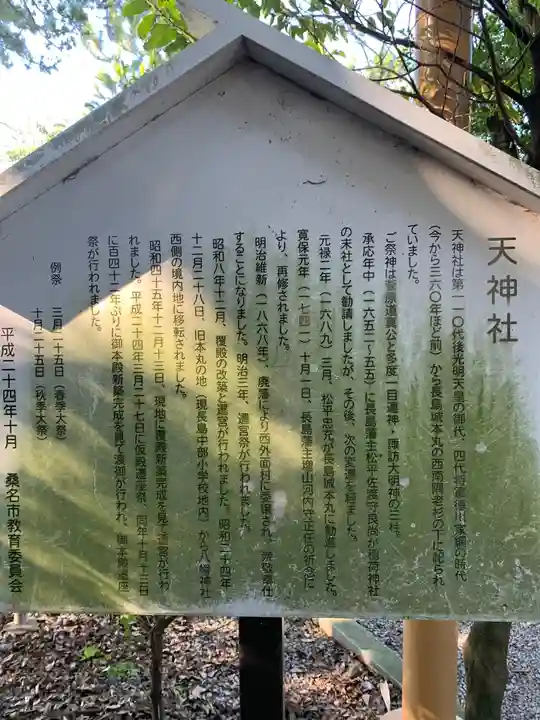 天神社
天神社は第一一〇代後光明天皇の御代、四代将軍徳川家綱の時代
(今から三六〇年ほど前)から長島城本丸の西南隅老杉の下に祀られ
ていました。
ご祭神は菅原道真公と多度一目連神、諏訪大明神の三柱。
承応年中(一六五二~五五)に長島藩主松平佐渡守良尚が稲荷神社
の末社として勧請しましたが、その後、次の変遷を経ました。
元禄二年(一六八九)三月、松平忠充が長島城本丸に勧進しました。
寛保元年(一七四一)十月一日、長島藩主増山河内守正任の祈念に
より、再修されました。
明治維新(一八六八年)、廃藩により西外面村に委譲され、崇敬奉仕
することになりました。明治三年、遷宮祭が行われました。
昭和八年十二月、覆殿の改築と遷宮が行われました。昭和二十四年
十二月二十八日、旧本丸の地(現長島中部小学校地内)から八幡神社
西側の境内地に移転されました。
昭和四十五年十二月十三日、現地に覆殿新築完成を見て遷宮が行わ
れました。平成二十四年三月二十七日に仮殿遷座祭、同年十月十三日
に百四十二年ぶりに御本殿新築完成を見て渡御が行われ、御本殿遷座
祭が行われました。
例祭 三月二十五日(春季大祭)
十月二十五日(秋季大祭)
平成二十四年十月 桑名市教育委員会